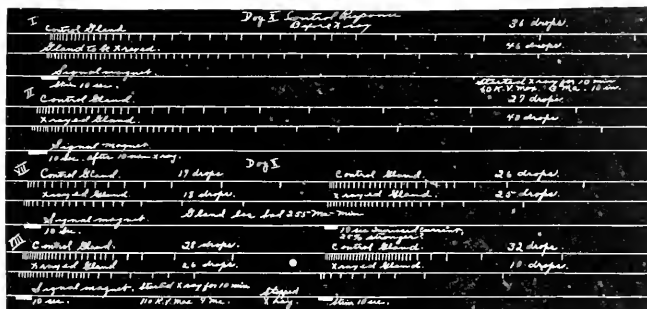 Dog X Control Response
Before X ray
I Control Gland 36 drops.
Gland to be Xrayed. 46 drops.
Signal magnet.
Stim 10 sec. Started X ray for 10 min
60 K.V. Max. 6 Ma. 10 in.
II Control Gland. 27 drops.
Xrayed Gland. 40 drops.
Signal magnet
10 Sec. after 10 min X ray.
Dog X
VII Control Gland. 19 drops Control Gland. 26 drops.
Xrayed Gland. 18 drops. Xrayed Gland. 25 drops.
Signal magnet Gland has had 255 Ma-min
10 Sec. 10 sec Increased Current,
25% stronger.
VIII Control Gland. 28 drops. Control Gland. 32 drops.
Xrayed Gland 26 drops. Xrayed Gland. 10 drops.
Signal magnet. Started X ray for 10 min Stopped
10 sec. 110 K.V. Max 9 Ma. X ray. Stim 10 sec.